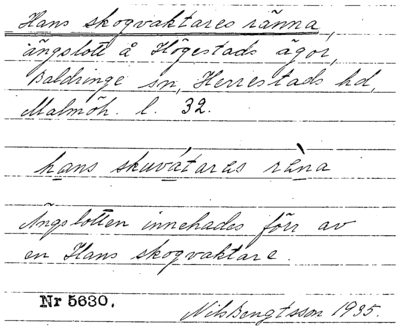 Hans skogvaktares ränna,
ängslott å Högestads ägor,
Baldringe sn, Herrestads hd,
Malmöh. l. 32.
hans skuvátares ræ̀na
Ängslotten innehades förr av
en Hans skogvaktare.
Nr 5630.
Nils Bengtsson 1935.